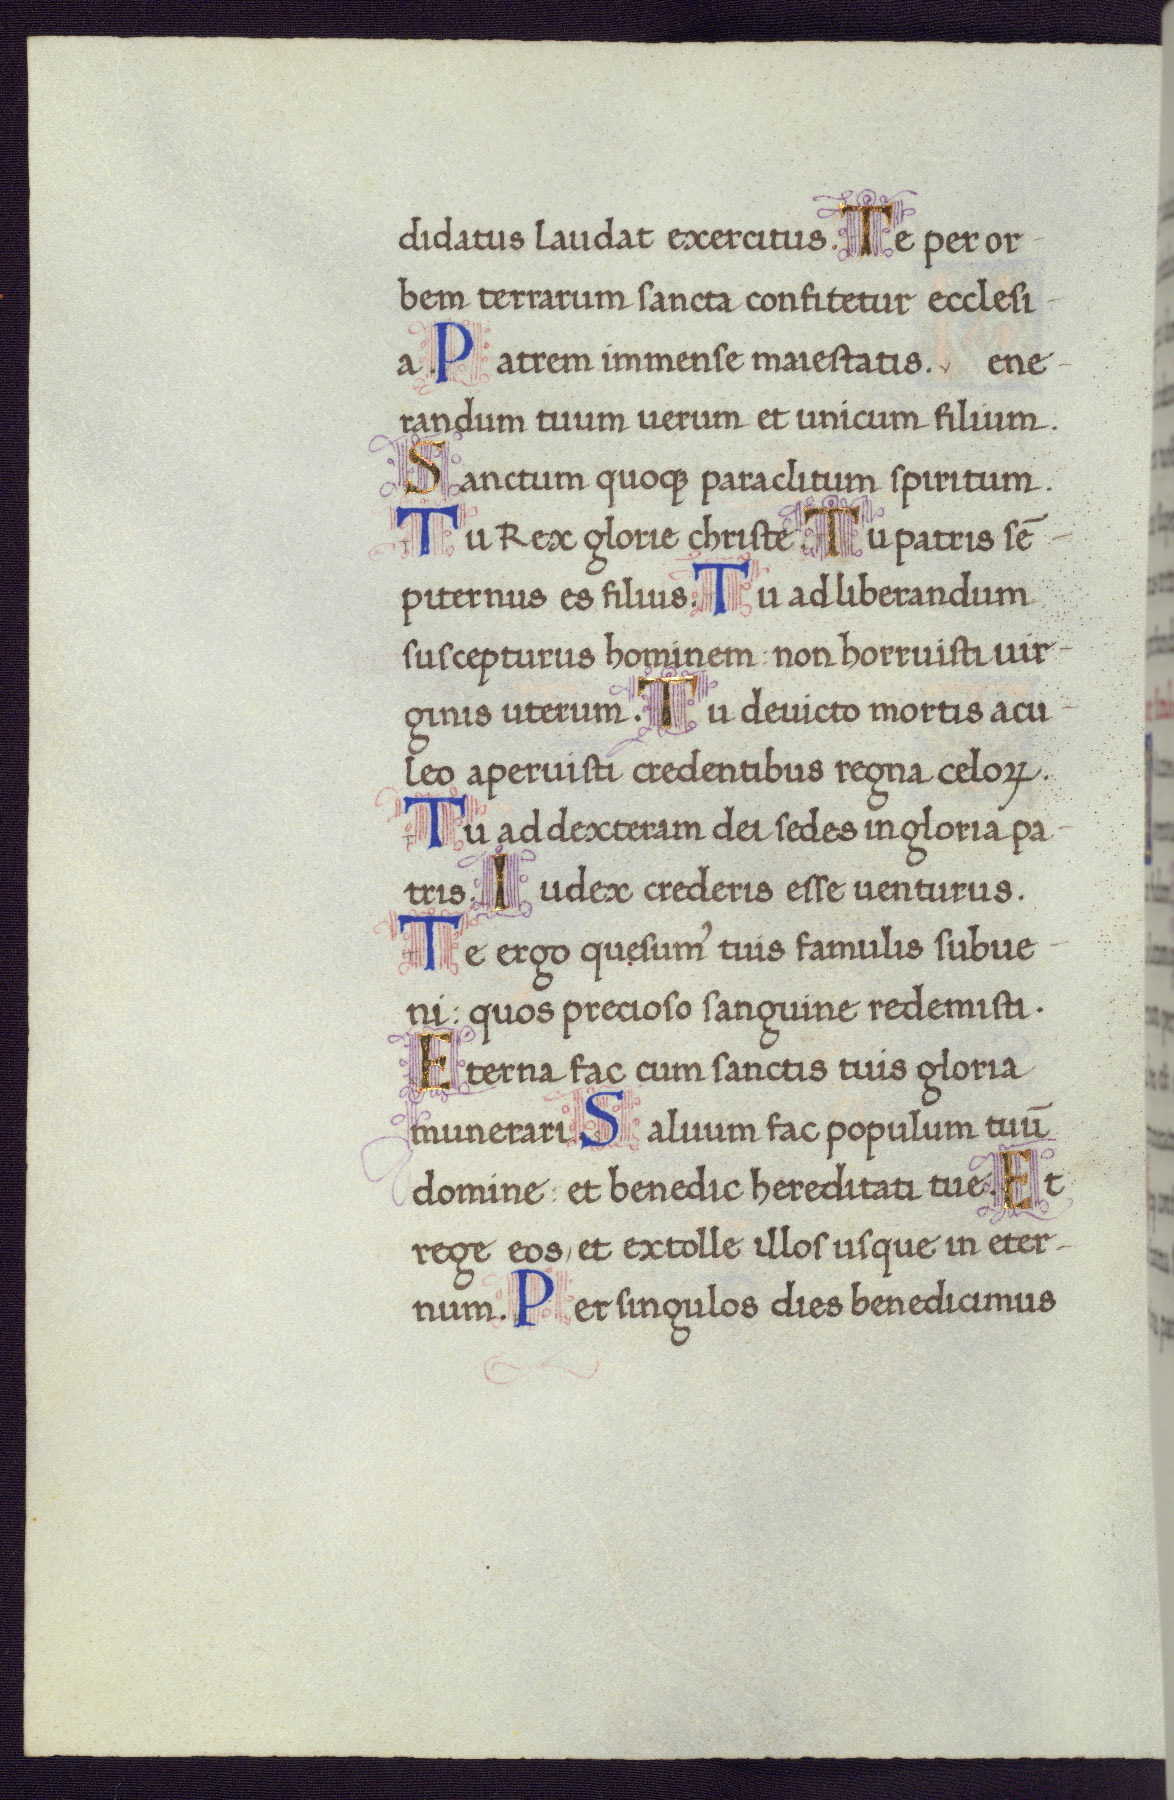 didatus laudat exercitus. Te per or-
bem terrarum sancta confitetur ecclesi-
a. Patrem immense maiestatis. v ene-
randum tuum uerum et unicum filium.
Sanctum quoqꝫ paraclitum spiritum.
Tu Rex glorie christe. Tu patris sē-
piternus es filius. Tu ad liberandum
suscepturus hominem: non horruisti uir-
ginis uterum. Tu deuicto mortis acu-
leo aperuisti credentibus regna celoꝝ.
Tu ad dexteram dei sedes in gloria pa-
tris. Iudex crederis esse uenturus.
Te ergo quęsumꝰ tuis famulis subue-
ni: quos precioso sanguine redemisti.
Eterna fac cum sanctis tuis gloria
munerari. Saluum fac populum tuū
domine: et benedic hereditati tue. Et
rege eos, et extolle illos usque in eter-
num. Per singulos dies benedicimus